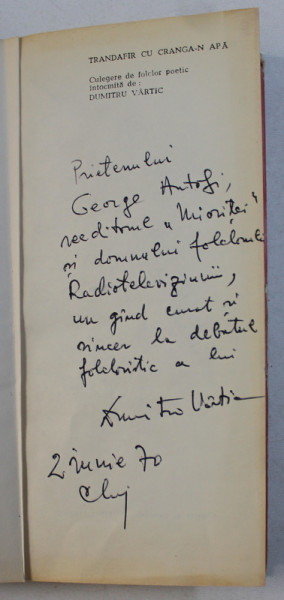 TRANDAFIR CU CRANGA-N APĂ
Culegere de folclor poetic
întocmită de :
DUMITRU VÂRTIC
Prietenului
George Antofi,
reeditorul „Mioriței”
și domnului folclorului
Radioteleviziunii,
un gînd curat și
sincer la debutul
folcloristic a lui
Dumitru Vârtic
2 iunie 70
Cluj